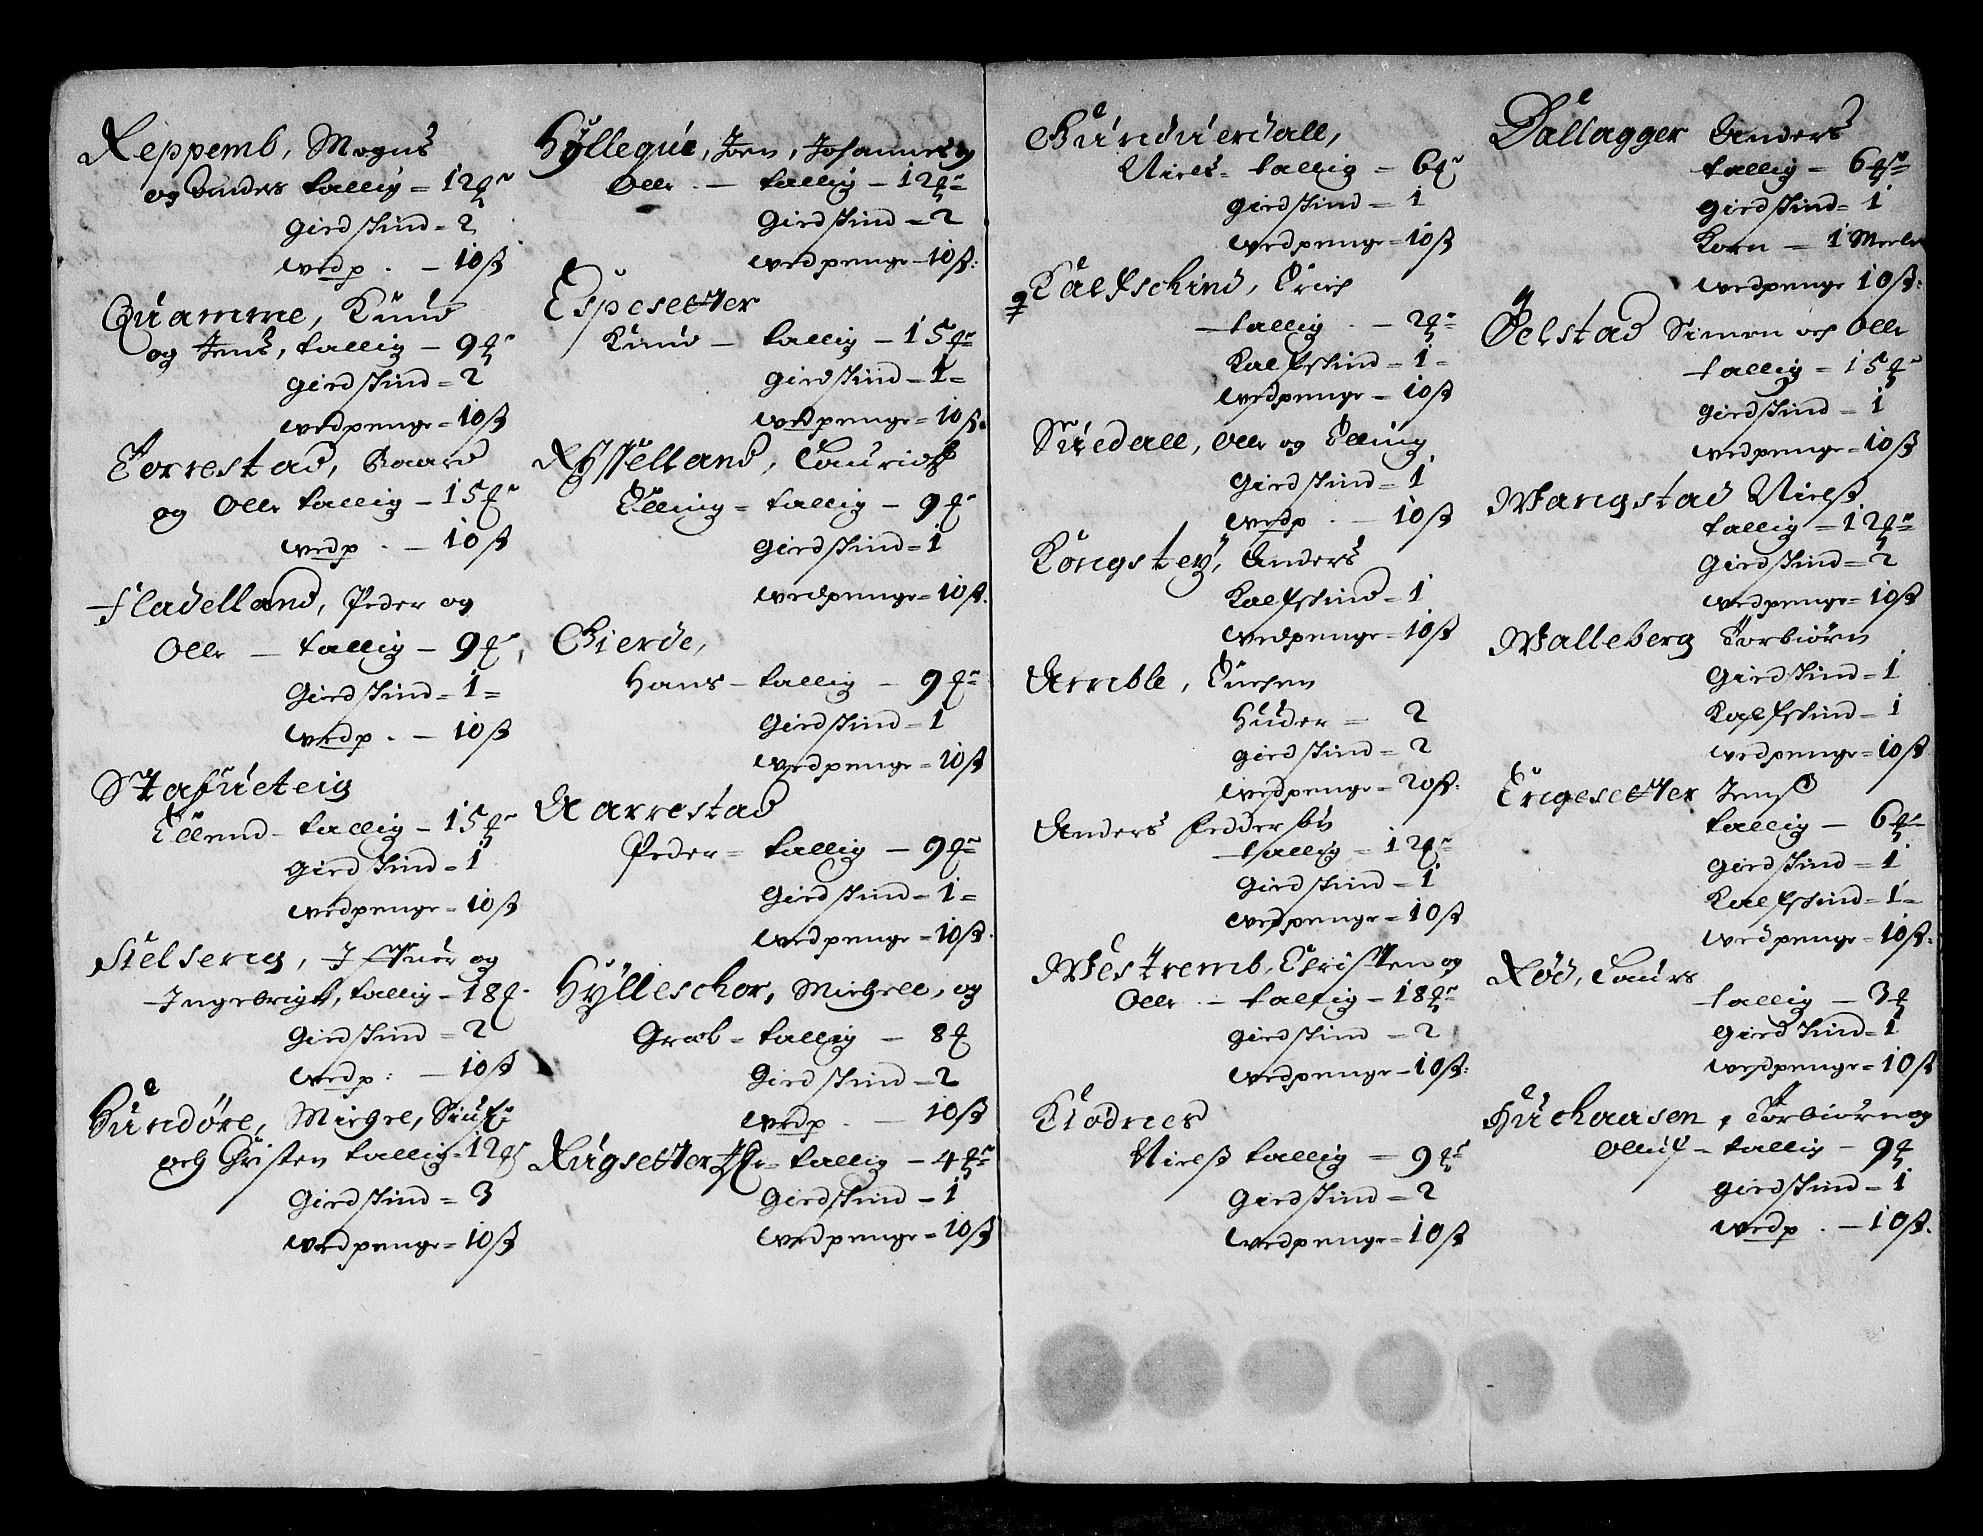 Reppemb, Mogns
og Anders tallig = 12
Gird skind = 2
wedp. – 10 ß
Quamme, Knud
og Jens, tallig – 9
Gird skind = 2
wedpenge = 10 ß
Torrestad, Baard
og Olle tallig – 15
wedp. – 10 ß
Fladelland, Peder og
Olle – tallig – 9
Gird skind = 1 =
wedp. – 10 ß
Stafueteig
Ellend – tallig – 15
Gird skind = 1
wedpenge = 10 ß
Sielseng, og
Ingebrigt, tallig – 18
Gird skind = 2
wedp: – 10 ß
Hundøre, Michel, Siul
och Christen tallig = 12
Gird skind = 3
wedpenge = 10 ß
Hyllegiie, Joen, Johannes og
Olle – tallig – 12
Gird skind = 2
wedpenge – 10 ß:
Espesetter
Knud – tallig – 15
Gird skind – 1 =
wedpenge = 10 ß.
Rysselland, Lauridß
Elling = tallig – 9
Gird skind = 1
wedpenge = 10 ß.
Gierde,
Hans – tallig – 9
Gird skind = 1
wedpenge = 10 ß
Aarrestad
Peder = tallig – 9
Gird skind – 1 =
wedpenge = 10 ß.
Hylleschor, Michell, og
Grab = tallig – 8
Gird skind – 2
wedp – 10 ß
Rugsetter = tallig – 4
Gird skind – 1
wedpenge = 10 ß
Gunduerdall,
Niels = tallig = 6
Gird skind = 1
wedpenge = 10 ß
Kalfschind, Erich
tallig – 2
Kalfskind = 1 =
wedpenge = 10 ß
Suedall, Olle og Elling
Gird skind = 1
wedp. – 10 ß
Kongstey, Anders
Kalfskind = 1
wedpenge = 10 ß
Amble,
Huder = 2
Gird skind = 2
wedpenge = 20 ß:
Anders Pedder
tallig = 12
Gird skind – 1
wedpenge = 10 ß
Westremb, Christen og
Olle – tallig – 18
Gird skind = 2
wedpenge – 10 ß:
Klodnes
Nielß tallig = 9
Gird skind = 2
wedpenge = 10 ß
Dallagger Anders
tallig – 6
Gird skind = 1
Korn – 1 Meele
wedpenge 10 ß:
Øelstad Simen och Olle
tallig = 15
Gird skind = 1
wedpenge = 10 ß
Wangstad Nielß
tallig = 12
Gird skind = 2
wedpenge = 10 ß
Walleberg Torbiørn
Gird skind = 1
Kalfskind – 1
wedpenge = 10 ß
Engesetter Jenß
tallig – 6
Gird skind = 1
Kalfskind = 1 =
wedpenge = 10 ß:
Rød, Laurs
tallig – 3
Gird skind = 1
wedpenge = 10 ß
Huchaasen, Torbiørn og
Olluf = tallig – 9
Gird skind = 1
wedp. – 10 ß.